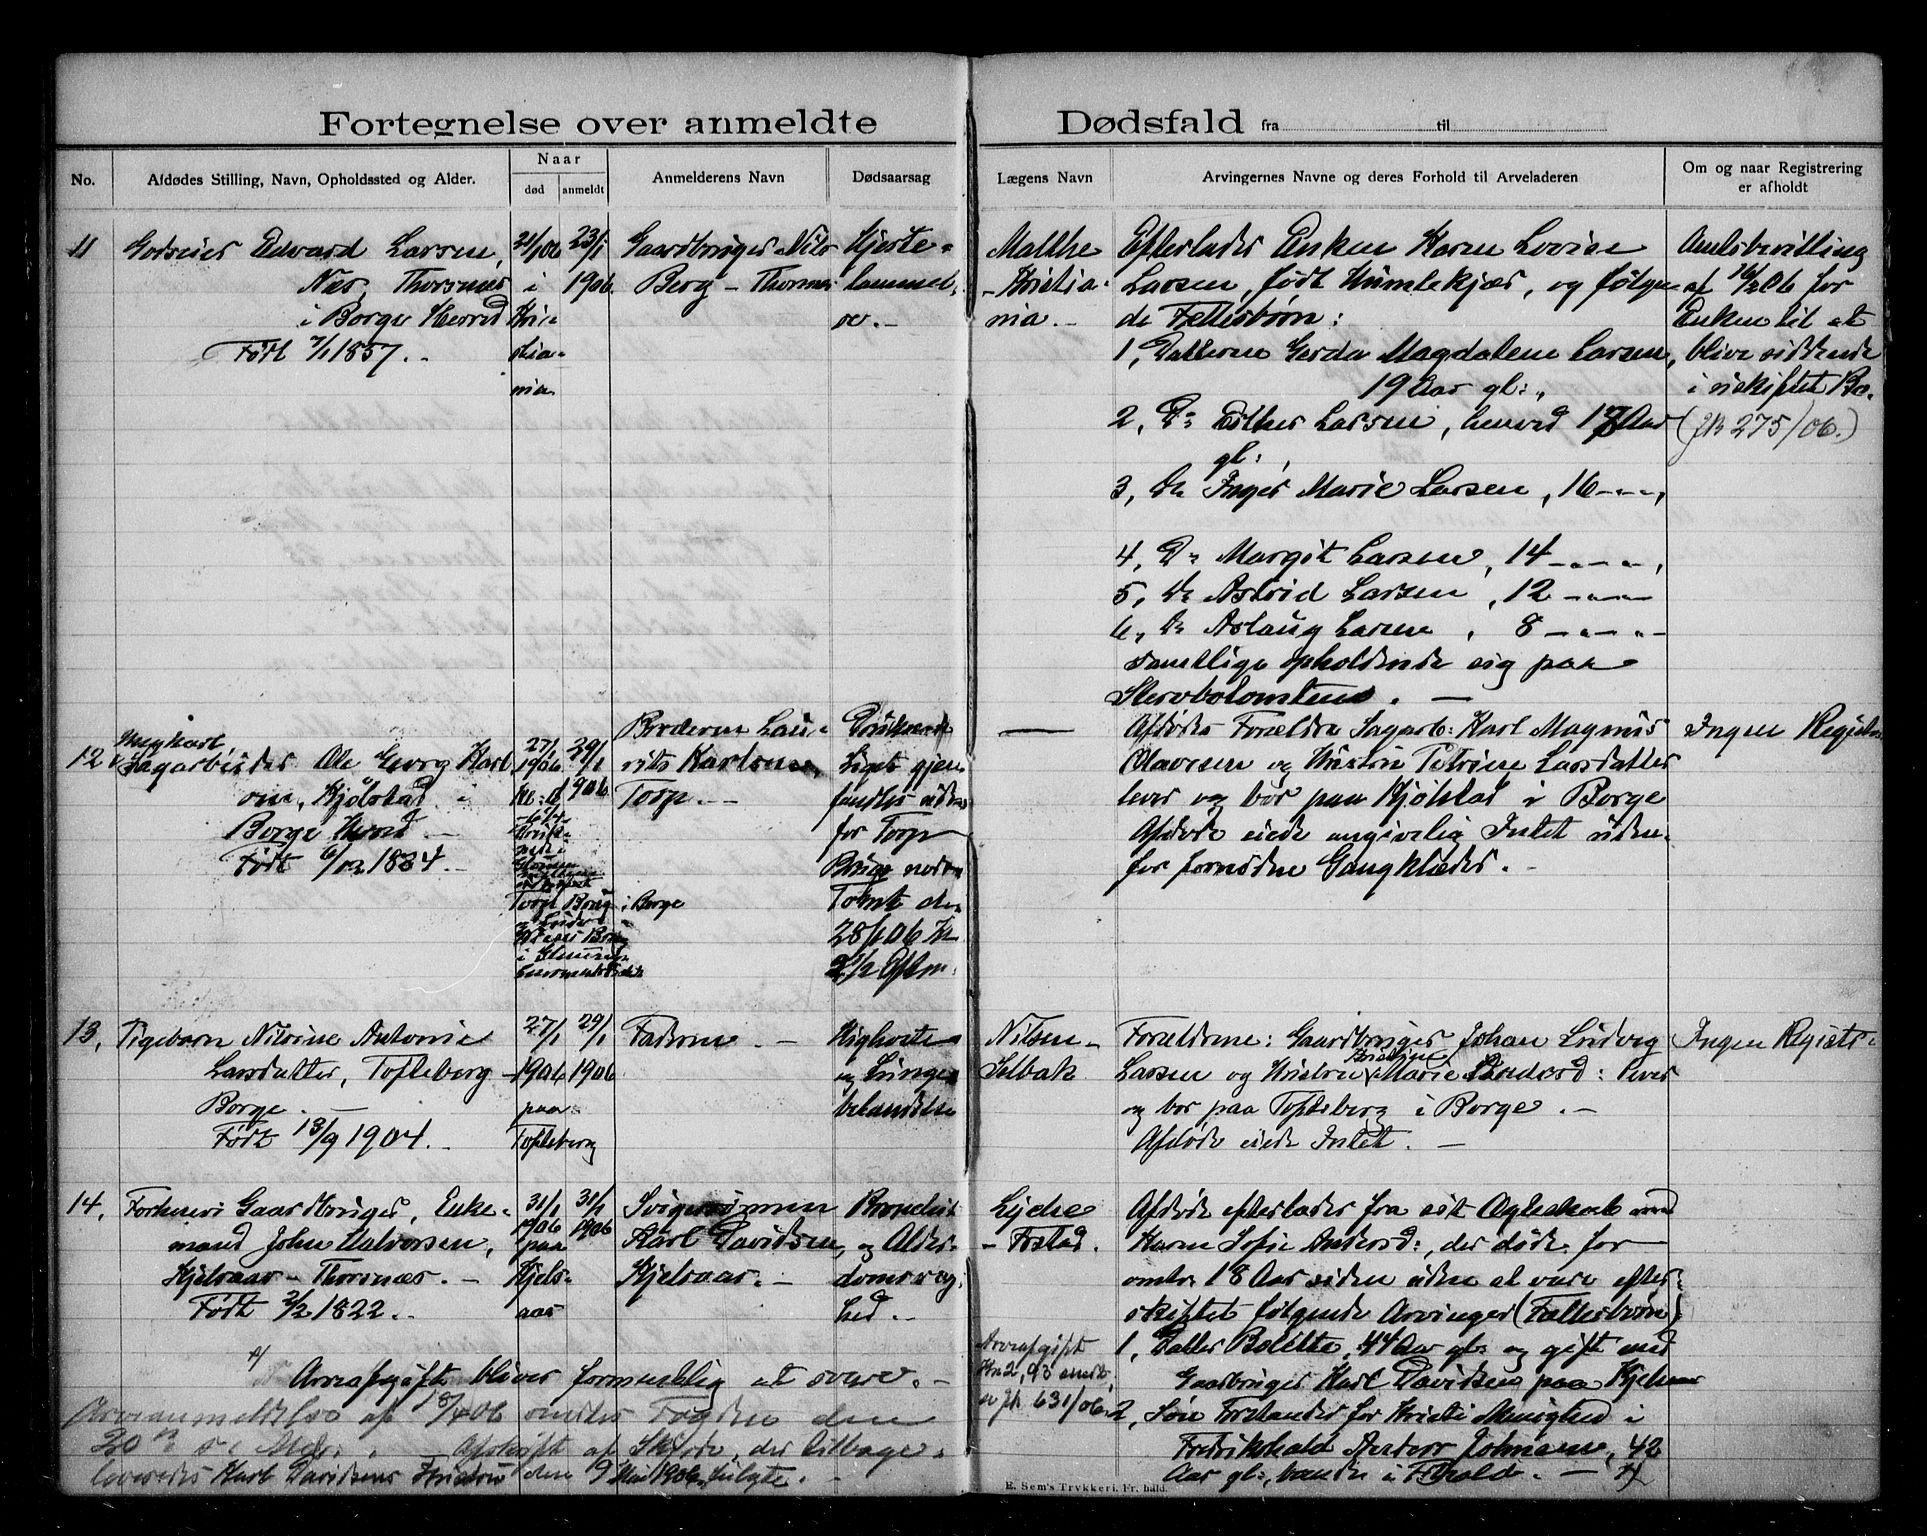 Fortegnelse over anmeldte Dødsfald fra til
No.
Afdødes Stilling, Navn, Opholdssted og Alder.
Naar
død
anmeldt
Anmelderens Navn
Dødsaarsag
Lægens Navn
Arvingernes Navne og deres Forhold til Arveladeren
Om og naar Registrering
er afholdt
11
Godseier Edvard Larsen,
Næs, Thorsnes
i Borge Herred
Født 7/1 1857. -
21/1 06
i
Kri-
stia-
nia
23/1
1906.
Gaardbruger Nils
Berg - Thorsnes
Hjerte-
lammel-
se. -
Malthe
- Kristia-
nia. -
Efterlader Enken Karen Lovise
Larsen, født Humlekjær, og følgen-
de Fællesbørn:
1, Datteren Gerda Magdalene Larsen,
19 Aar gl:,
2, Do Esther Larsen, henved 17 Aar
gl:,
3, Do Inger Marie Larsen, 16 - " - ,
4, Do Margit Larsen, 14 - " - " - " ,
5, Do Astrid Larsen, 12 - " - " -
6, Do Aslaug Larsen, 8 - " - " -
samtlige opholdende sig paa
Stervbotomten. -
Amtsbevilling
af 16/2 06 for
Enken til at
blive siddende
i uskiftet Bo.
(Jk 275/06.)
12
Ungkarl
Sagarbeider Ole Georg Karl
sen, Kjølstad i
Borge Herred -
Født 6/12 1884. -
27/1
1906
29/1
1906
Torp Brug i Borge
Broderen Lau-
rits Karlsen,
Torp. -
Druknede
Liget gjen-
fandtes uden-
for Torp
Brug nedre
Tomt den
28/1 06 Kl
2 1/2 Efterm.
-
Afdødes Forældre Sagarb: Karl Magnus
Olavesen og Hustru Petrine Larsdatter
lever og bor paa Kjølstad i Borge
Afdøde eiede angivelig Intet uden-
for fornødne Gangklæder. -
Ingen Registr.
13,
Pigebarn Nilsine Antonie
Larsdatter, Tofteberg -
Borge. -
Født 13/9 1904. -
27/1
1906
paa
Tofteberg
29/1
1906
Faderen. -
Kighoste
og Lunge-
betændelse
Nilsen -
Selbak
Forældrene: Gaardbruger Johan Ludvig
Larsen og Hustru Marie Andersd: lever
og bor paa Tofteberg i Borge. -
Afdøde eiede Intet. -
Ingen Registr.
14,
Forhenv: Gaardbruger, Enke-
mand John Halvorsen,
Kjelsaas - Thorsnæs. -
Født 2/2 1822. -
31/1
1906
paa
Kjels-
aas
31/1
1906
Svigersønnen
Karl Davidsen,
Kjelsaas. -
Bronchit
og Alder-
domssvag-
hed. -
Lyche
- Frstad.
Afdøde efterlader fra sit Ægteskab med
Karen Sofie Andersd:, der døde for
omtr. 18 Aar siden uden at være efter-
skiftet følgende Arvinger (Fællesbørn):
1, Datter Bolette, 44 Aar gl: og gift med
Gaardbruger Karl Davidsen paa Kjelsaas
2, Søn Forstander for Kristi Menighed i
Fredrikshald Anders Johnsen, 42
Aar gl:, boende i Frhald. -
Arveafgift
Kr 2,93
Jk 631/06.
Arveafgift bliver formentlig at svare. -
Arveanmeldelse af 8/4 06 Fogden den
20de s. Md: Afskift af Skjøde, der tilbage-
leveredes Karl Davidsens Hustru den 9 Mai 1906, fulgte. -
E. Sem's Trykkeri. Fr. hald.